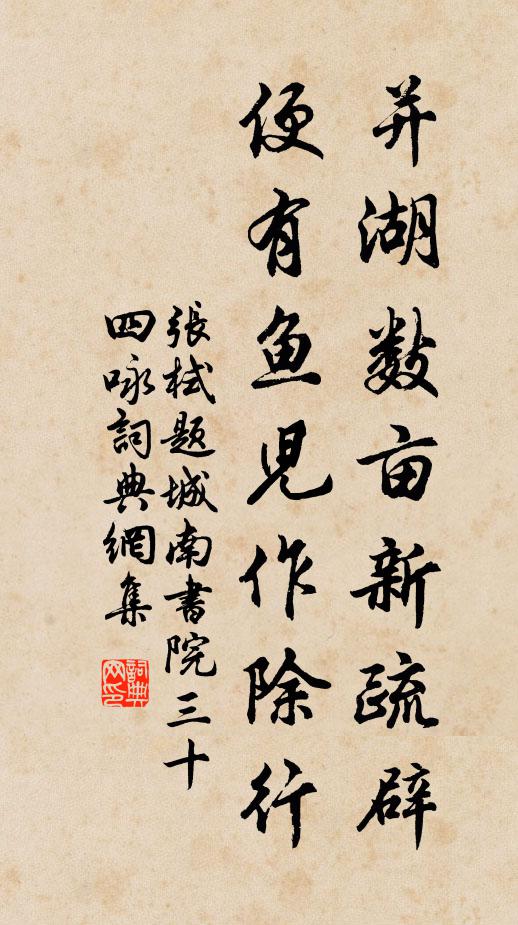 并湖数亩新疏辟
便有鱼児作除行
張栻题城南書院三十
四咏詞典網集
詞典网印